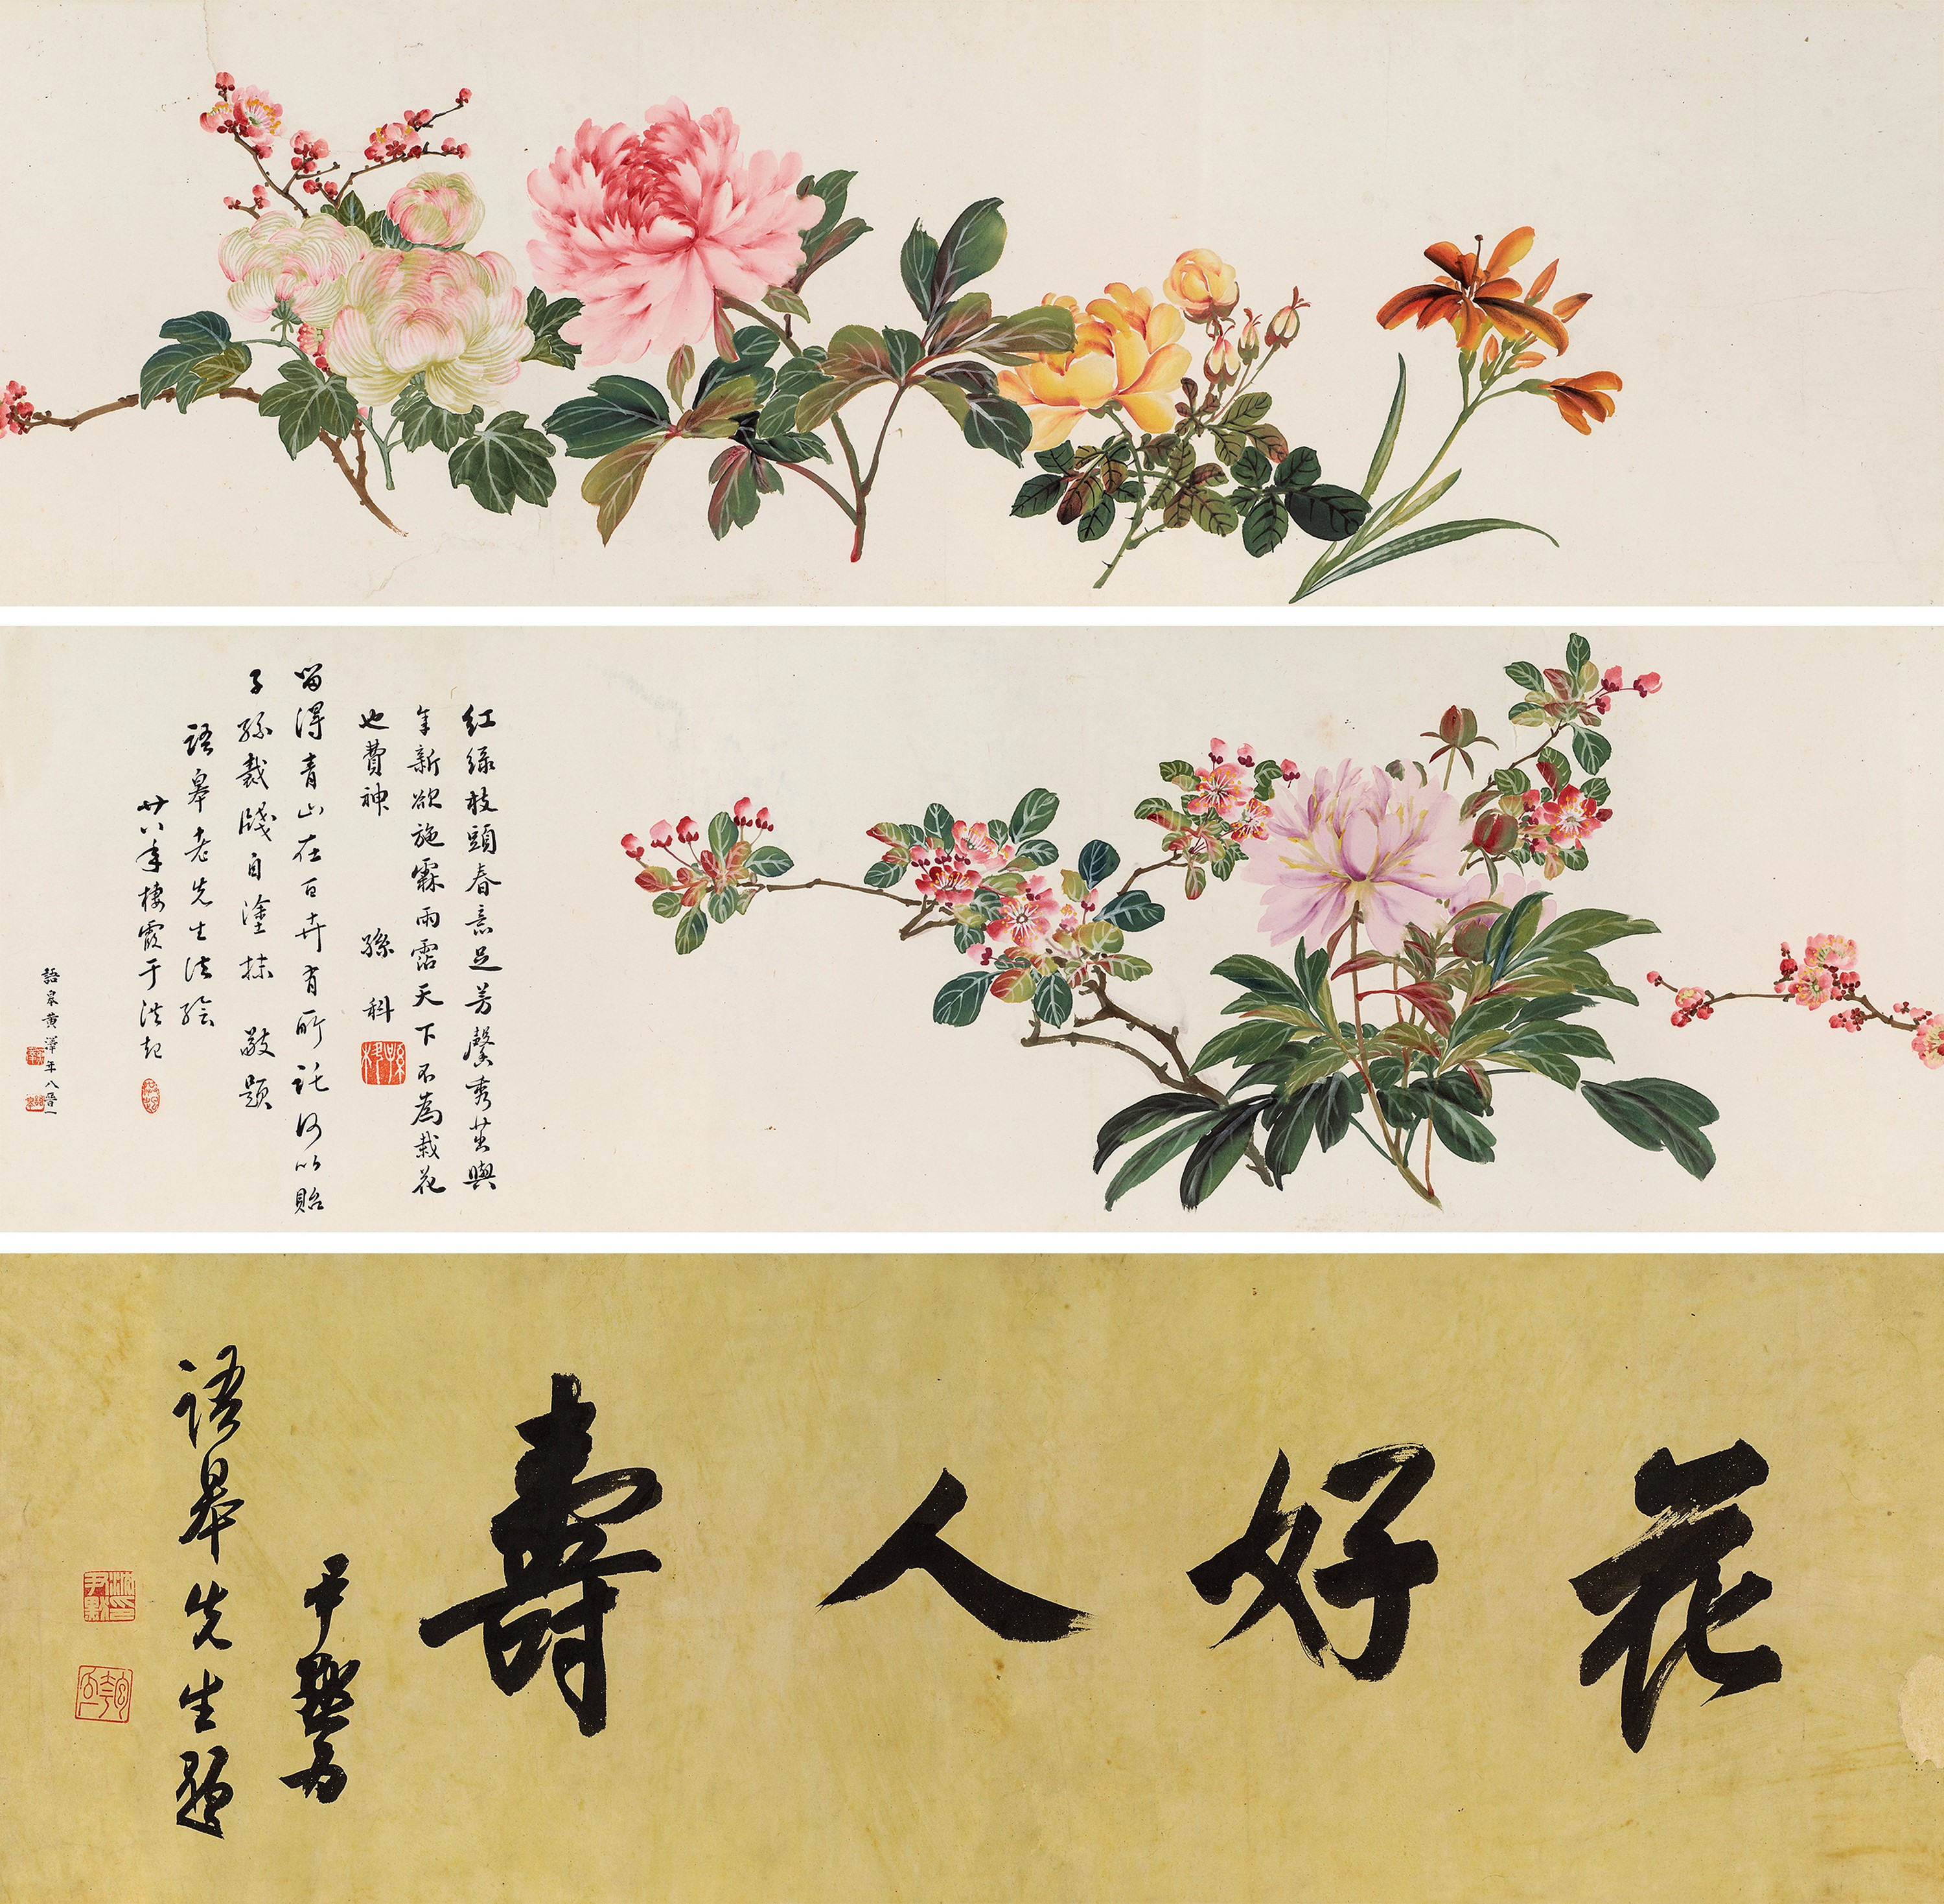 紅綠枝頭春意足芳馨秀茁與
年新欲施霖雨霑天下不為栽花
也費神 孫科
孫科
留得青山在百卉有所託何以貽
子孫裁牋自塗抹 敬題
語皋老先生法繪
廿八年棲霞于洪起
語皋黃澤年八晉一
花好人壽
尹默為
語皋先生題